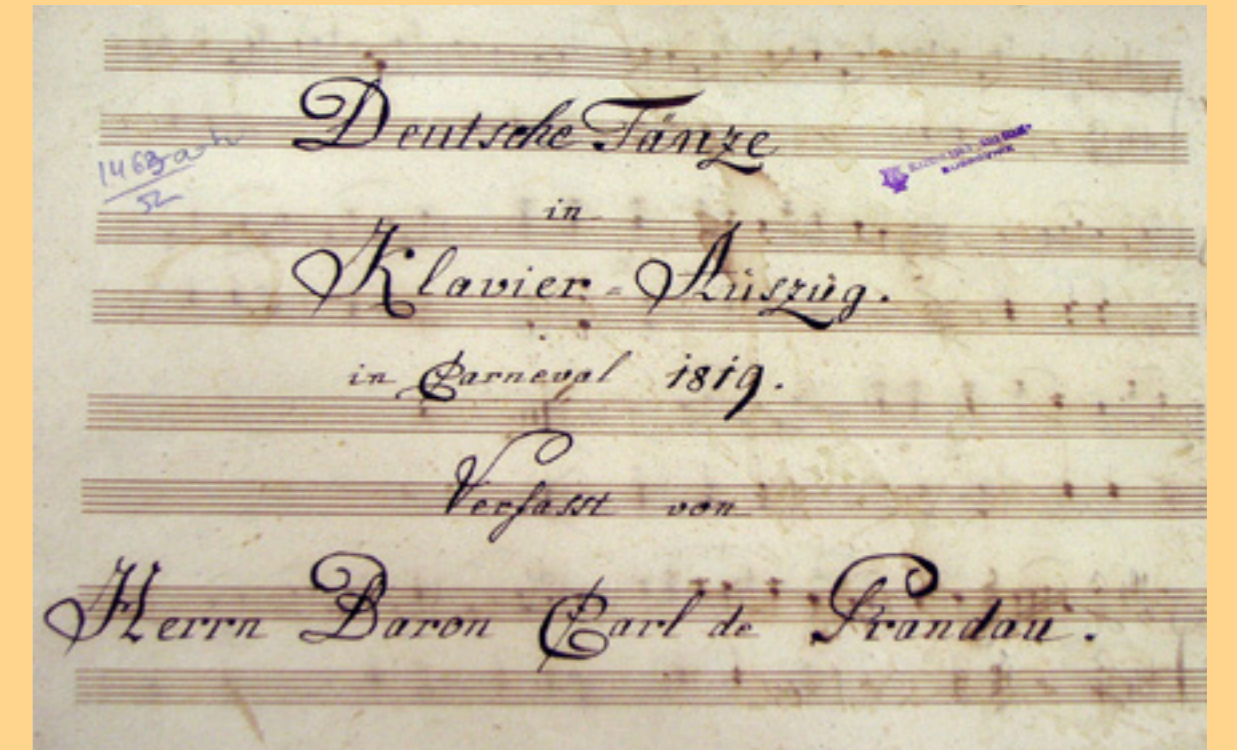 Deutsche Tänze
in
Klavier-Auszug.
in Carneval 1819.
Verfasst von
Herrn Baron Carl de Prandau.
52